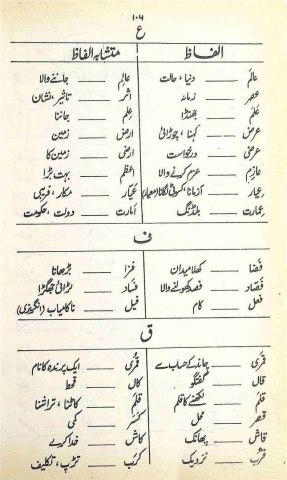 ۱۰۶
ع
الفاظ متشابہ الفاظ
عالَم ____ دنیا، حالت عالِم ____ جاننے والا
عصر ____ زمانہ اثر ____ تاثیر، نشان
عَلَم ____ جھنڈا عِلم ____ جاننا
عرض ____ کہنا، چوڑائی ارض ____ زمین
عرضی ____ درخواست ارضی ____ زمین کا
عازم ____ عزم کرنے والا اعظم ____ بہت بڑا
عِیار ____ آزمانا، کسوٹی لگانا (معیار) عَیّار ____ مکار، فریبی
عمارت ____ بلڈنگ امارت ____ دولت، حکومت
ف
فَضا ____ کھلا میدان فزا ____ بڑھانا
فَصّاد ____ فصد کھولنے والا فساد ____ لڑائی جھگڑا
فعل ____ کام فیل ____ ناکامیاب (انگریزی)
ق
قَمَری ____ چاند کے حساب سے قُمری ____ ایک پرندہ کا نام
قال ____ گفتگو کال ____ قحط
قلم ____ لکھنے کا قلم قلم ____ کاٹنا، تراشنا
قصر ____ محل کسر ____ کمی
قاش ____ پھانک کاش ____ خدا کرے
قُرب ____ نزدیک کرب ____ تڑپ، تکلیف